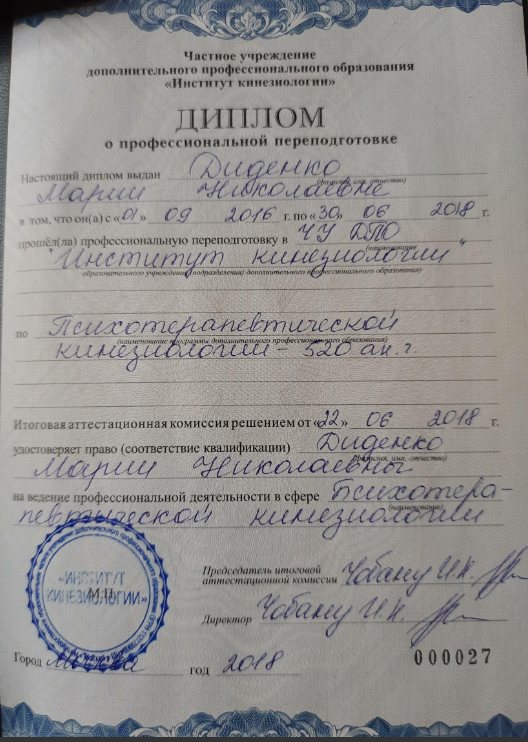 Частное учреждение
дополнительного профессионального образования
«Институт кинезиологии»
ДИПЛОМ
о профессиональной переподготовке
Настоящий диплом выдан Диденко
(фамилия, имя, отчество)
Марии Николаевне
в том, что он(а) с «01» 09 2016 г. по «30» 06 2018 г.
прошёл(ла) профессиональную переподготовку в ЧУ ДПО
(наименование
"Институт кинезиологии"
образовательного учреждения (подразделения) дополнительного профессионального образования)
по Психотерапевтической
(наименование программы дополнительного профессионального образования)
кинезиологии - 520 ак.ч.
Итоговая аттестационная комиссия решением от «22» 06 2018 г.
удостоверяет право (соответствие квалификации) Диденко
(фамилия, имя, отчество)
Марии Николаевны
на ведение профессиональной деятельности в сфере Психотера-
(наименование)
певтической кинезиологии
Председатель итоговой
аттестационной комиссии Чобану И.К.
Директор Чобану И.К.
«ИНСТИТУТ
КИНЕЗИОЛОГИИ»
М.П.
Город Москва год 2018
000027